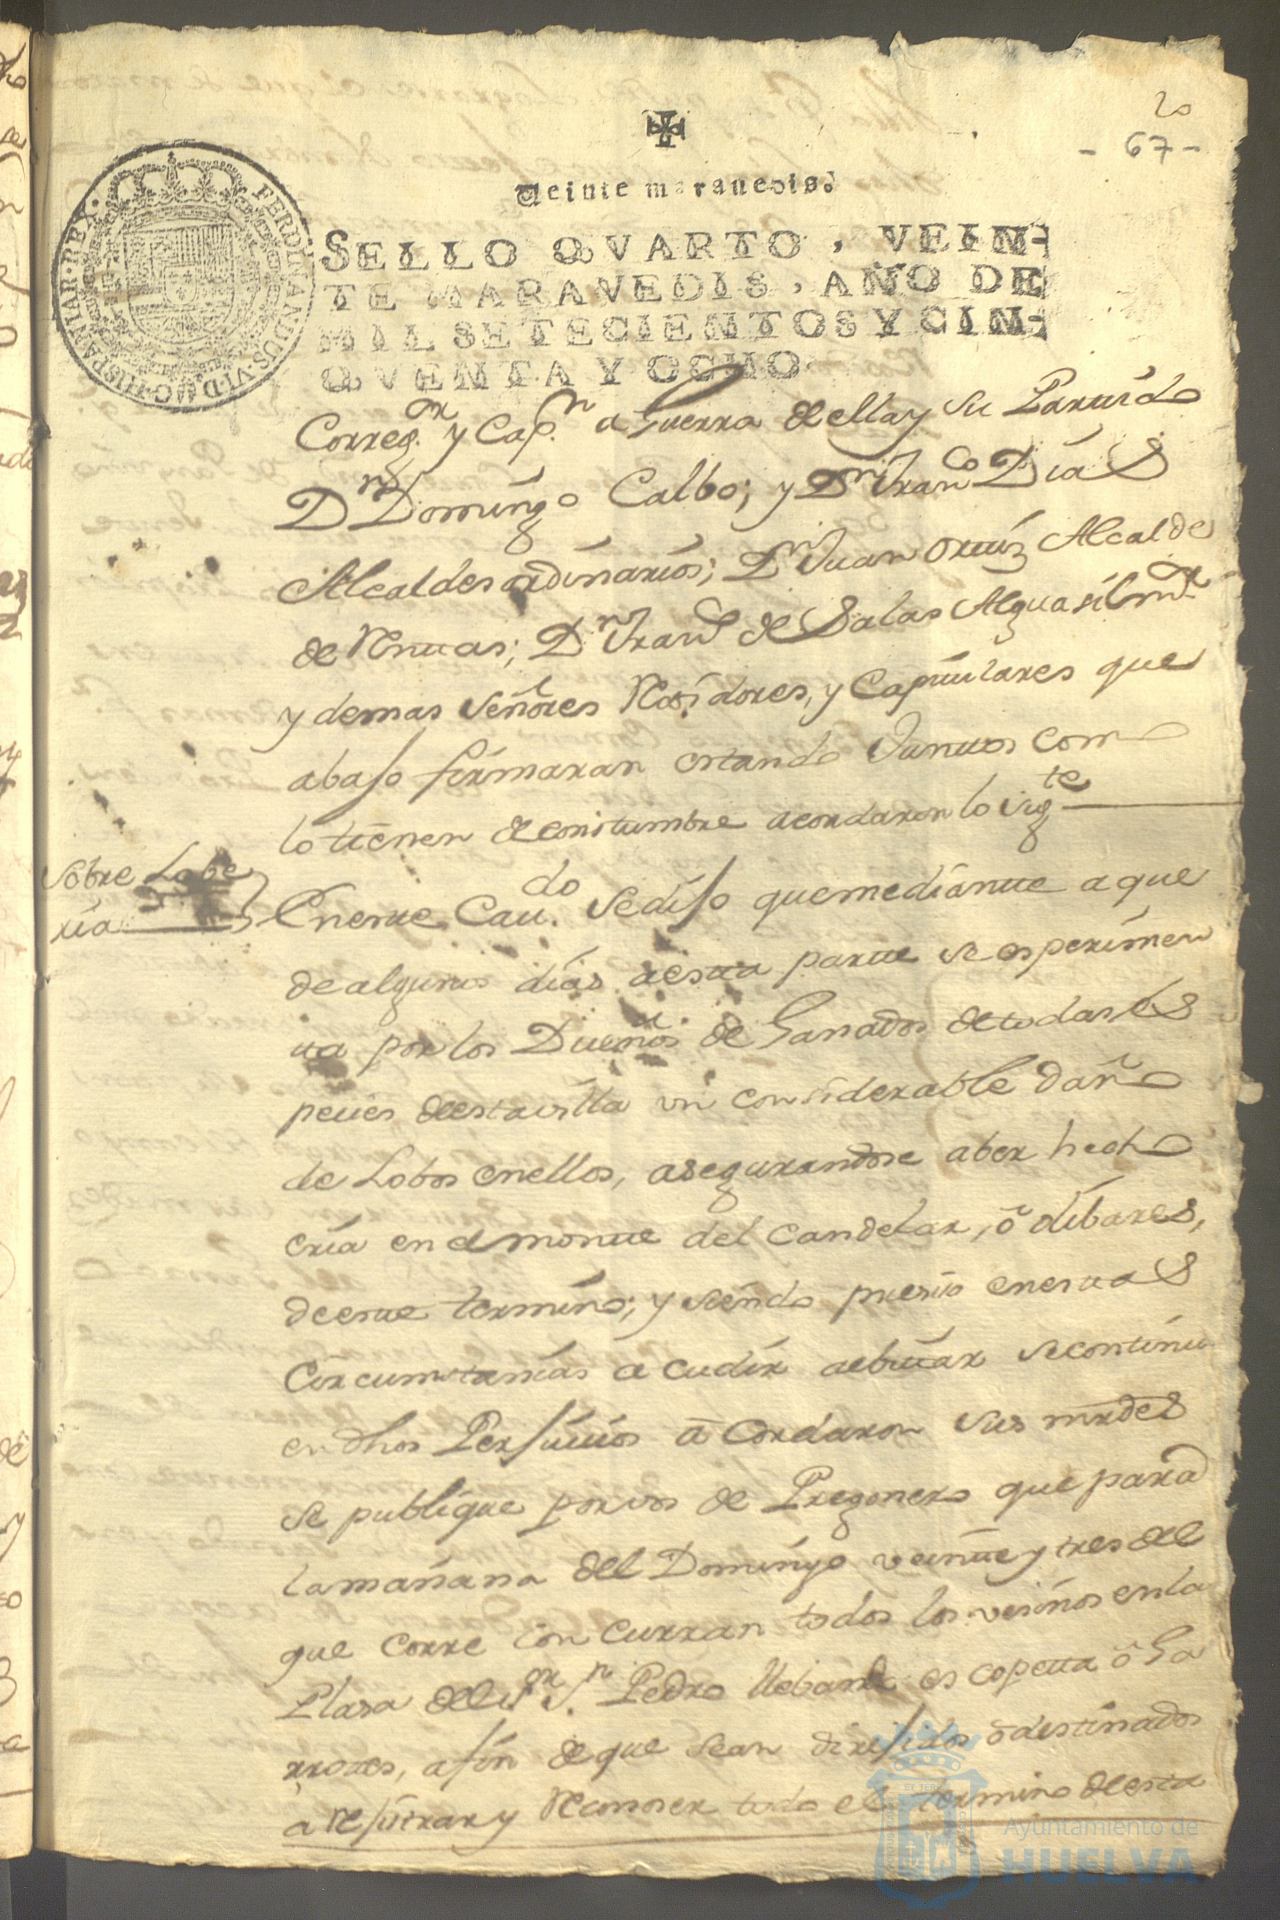 20
- 67 -
Veinte maravedis.
SELLO QVARTO, VEIN-
TE MARAVEDIS, AÑO DE
MIL SETECIENTOS Y CIN-
QVENTA Y OCHO
FERDINANDUS·VI·D·G·HISPANIAR·REX·
Correg.or y Cap.n a Guerra de ella y su Partido
Dn Domingo Calbo; y Dn Franco Dias
Alcaldes ordinarios; Dn Juan Ortiz Alcalde
de Renttas; Dn Franco de Salas Alguasil mr
y demas Señores Rexidores, y Capitulares que
abajo firmaran estando Junttos como
lo tienen de constumbre acordaron lo sigte
Sobre Lobe
ria
En estte Cavdo se dijo que mediantte a que
de algunos dias a estta partte se esperimen
tta por los Dueños de Ganados de todas es
pecies de esta villa un considerable daño
de Lobos en ellos, asegurandose aber hecho
cria en el montte del Candelar, ô dibares,
de estte termino; y siendo presiso en esttas
Circumstansias acudir a ebittar se continu
en dhos Perjuisios acordaron sus mrdes
se publique por vos de Pregonero que para
la mañana del Domingo veintte y tres del
que corre concurran todos los vesinos en la
Plasa del Sor Sn Pedro llebando escopetta ô Ga
rrottes, a fin de que sean dirijidos ô destinados
a rejistrar y Reconoser todo el termino de esta
Ayuntamiento de
HUELVA